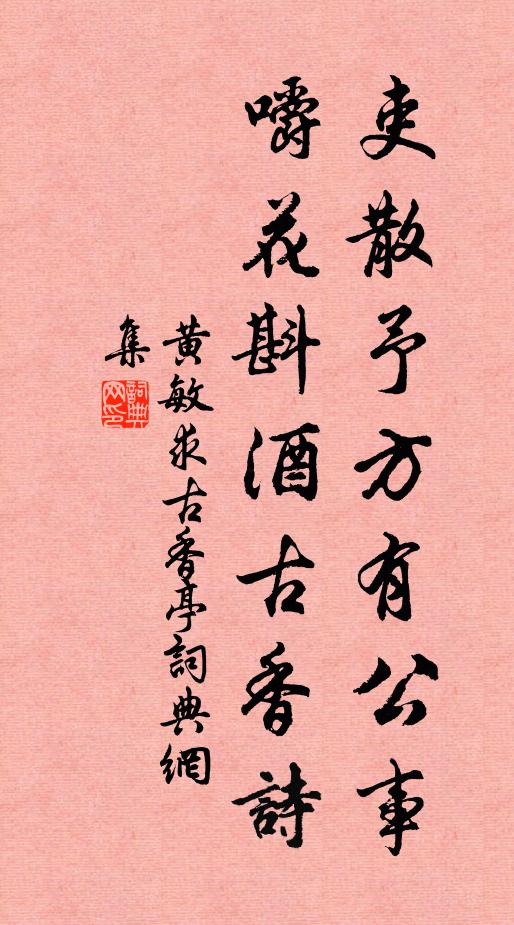 吏散予方有公事
嚼花斟酒古香詩
黄敏求古香亭詞典網
集
詞典網印